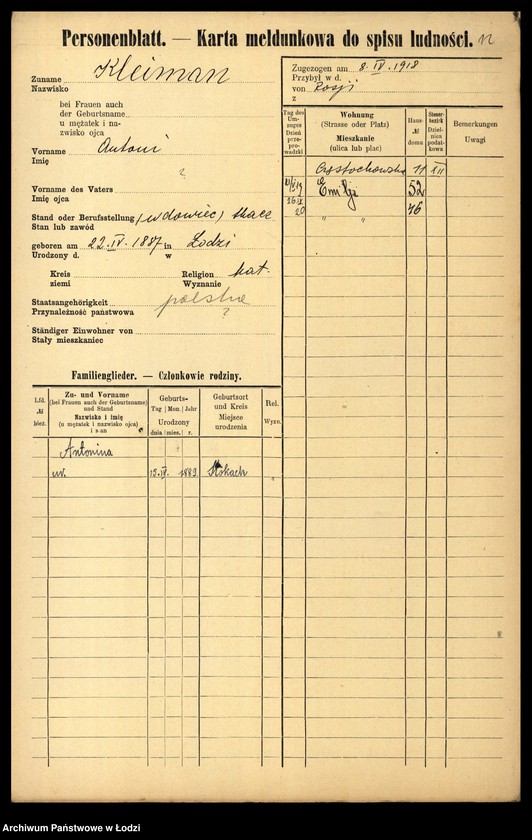 Personenblatt. — Karta meldunkowa do spisu ludności.
Zuname Kleiman
Nazwisko
bei Frauen auch
der Geburtsname
u mężatek i na-
zwisko ojca
Vorname Antoni
Imię
?
Vorname des Vaters
Imię ojca
Stand oder Berufsstellung (wdowiec) tkacz
Stan lub zawód
geboren am 22. IV. 1887 in Łodzi
Urodzony d. w
Kreis Religion kat.
ziemi Wyznanie
Staatsangehörigkeit polskie
Przynależność państwowa ?
Ständiger Einwohner von
Stały mieszkaniec
Zugezogen am 8. IV. 1918
Przybył w d.
von Rosji
z
Tag des Um-zuges Dzień prze-prowadzki
Wohnung (Strasse oder Platz) Mieszkanie (ulica lub plac)
Haus- № domu
Steuer-bezirk Dziel-nica podat-kowa
Bemerkungen Uwagi
Częstochowska 11 XII
Emilji 52
20 " " 46
Familienglieder. — Członkowie rodziny.
Lfd. № bież.
Zu- und Vorname (bei Frauen auch der Geburtsname) und Stand Nazwisko i imię (u mężatek i nazwisko ojca) i stan
Geburts- Tag Mon. Jahr Urodzony dnia mies. r.
Geburtsort und Kreis Miejsce urodzenia
Rel. Wyzn.
Antonina
13. IV. 1889 Stokach
Archiwum Państwowe w Łodzi